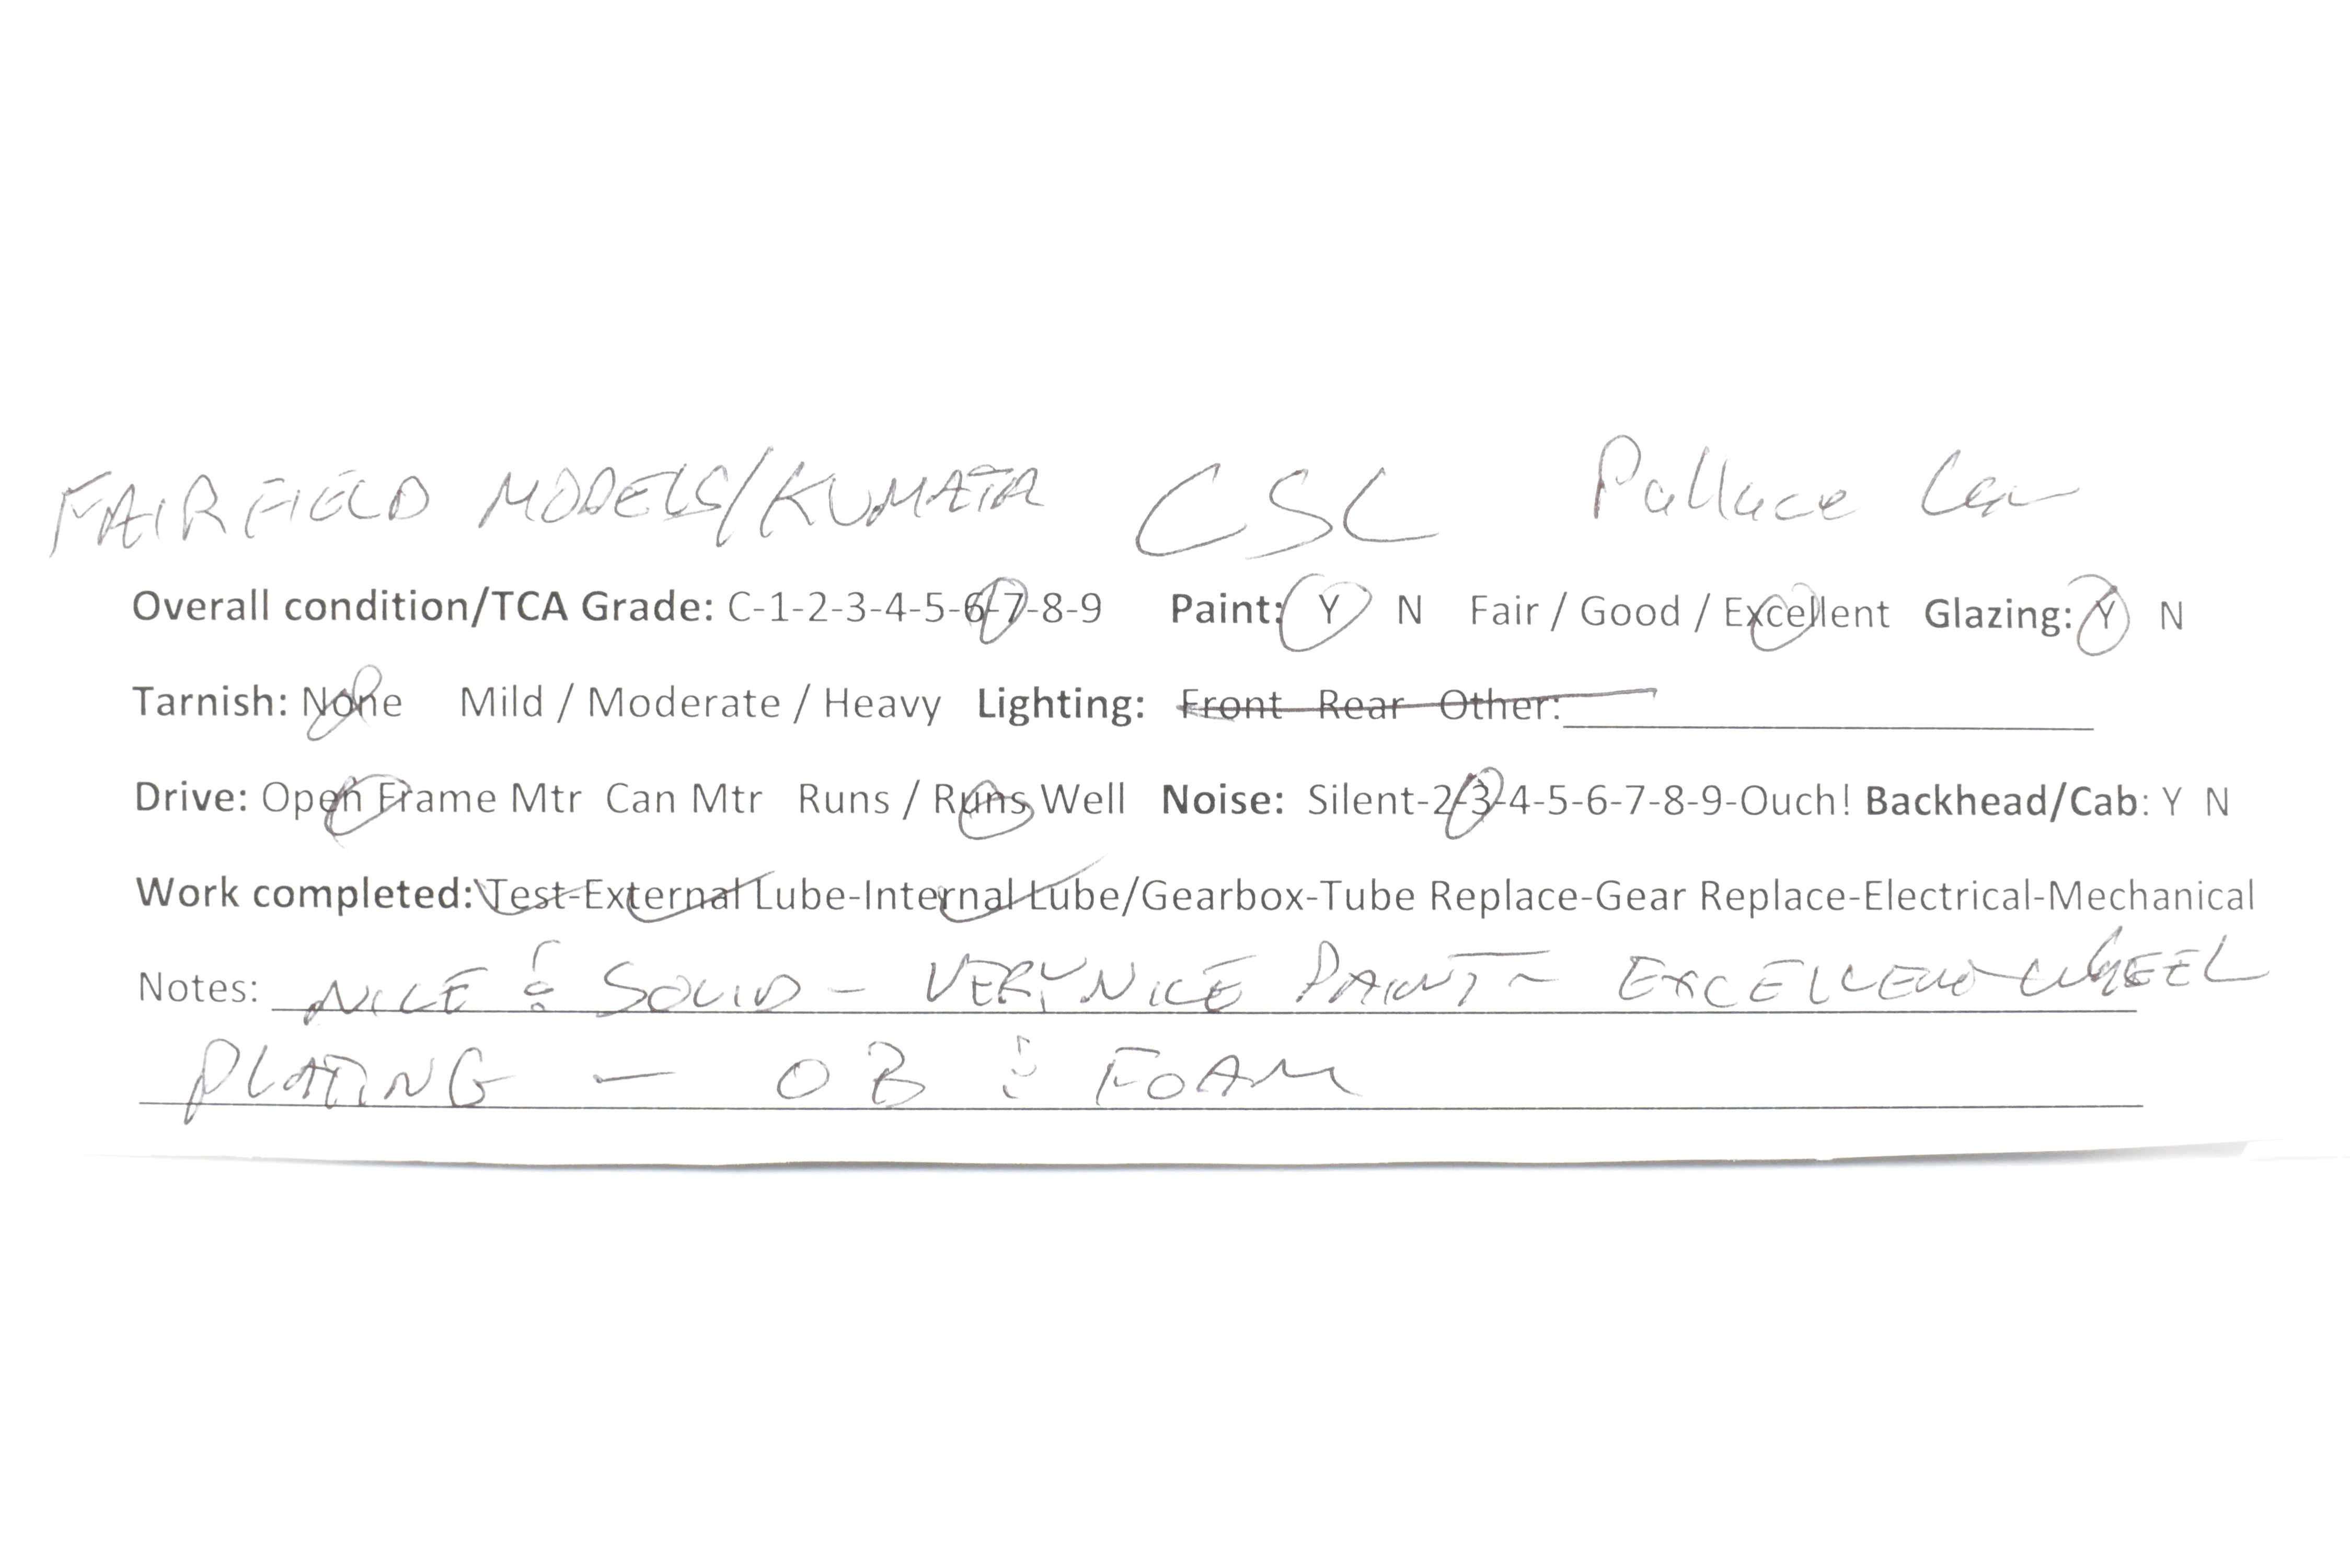 FAIRFIELD MODELS/KUMATA CSL Pallace Car
Overall condition/TCA Grade: C-1-2-3-4-5-6-7-8-9 Paint: Y N Fair / Good / Excellent Glazing: Y N
Tarnish: None Mild / Moderate / Heavy Lighting: Front Rear Other:
Drive: Open Frame Mtr Can Mtr Runs / Runs Well Noise: Silent-2-3-4-5-6-7-8-9-Ouch! Backhead/Cab: Y N
Work completed: Test-External Lube-Internal Lube/Gearbox-Tube Replace-Gear Replace-Electrical-Mechanical
Notes: NICE & SOLID - VERY NICE PAINT - EXCELLENT WHEEL
PLATING - OB & FOAM